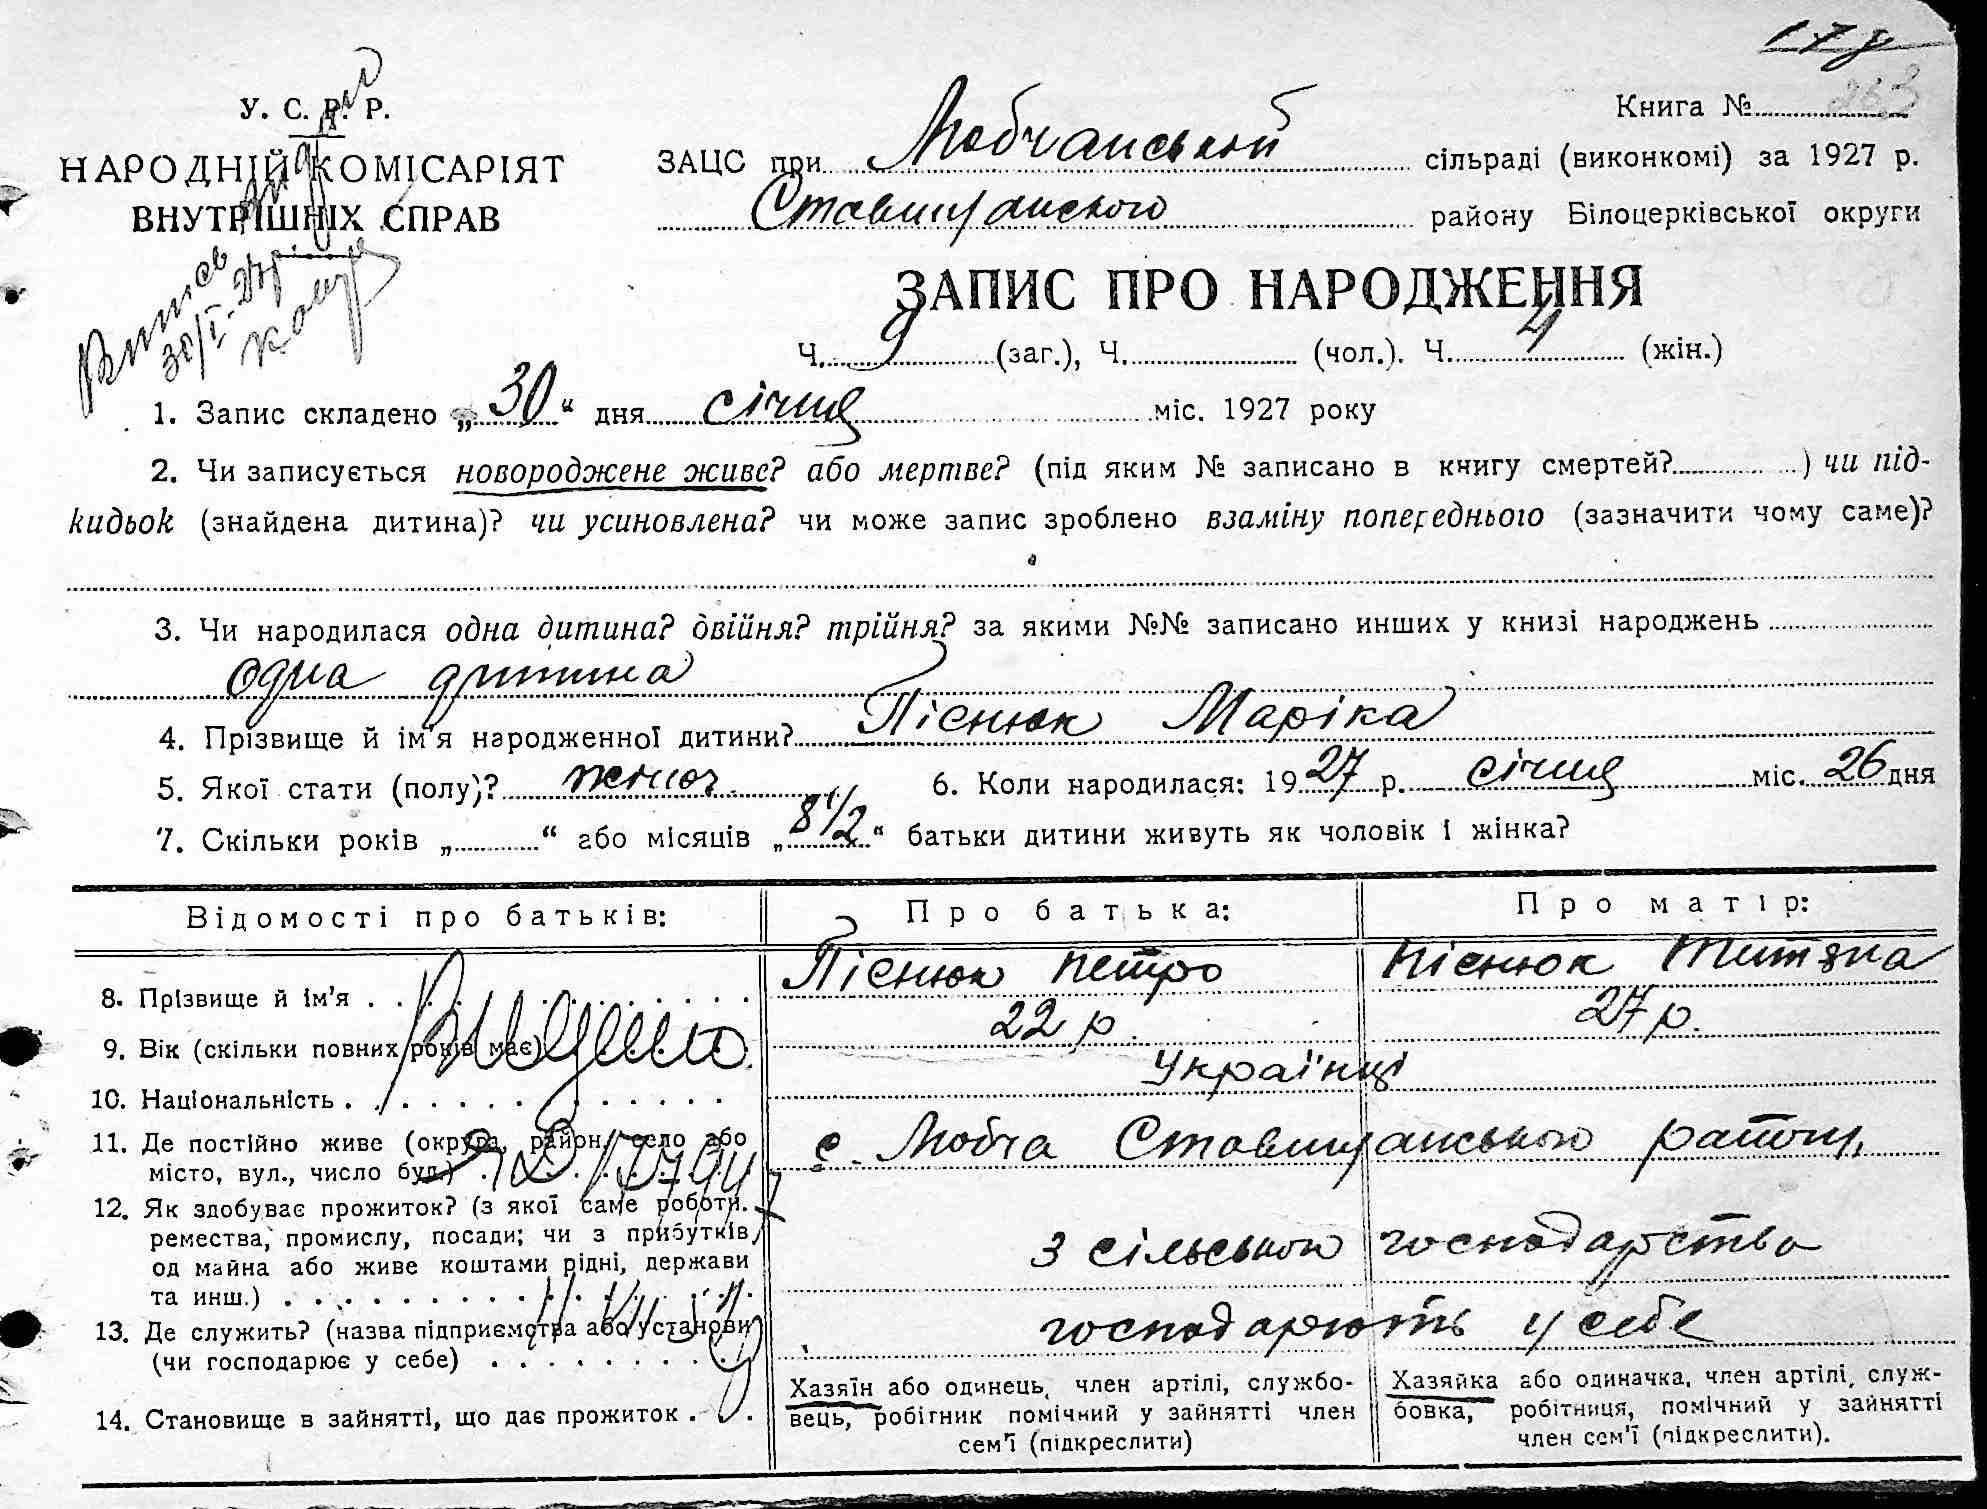 У. С. Р. Р.
НАРОДНІЙ КОМІСАРІЯТ
ВНУТРІШНІХ СПРАВ
Випись видано
30/I-27р.
Книга №
ЗАЦС при Любчанській сільраді (виконкомі) за 1927 р.
Ставищанського району Білоцерківської округи
ЗАПИС ПРО НАРОДЖЕННЯ
Ч. 9 (заг.), Ч. (чол.). Ч. 4 (жін.)
1. Запис складено „ 30 “ дня січня міс. 1927 року
2. Чи записується новороджене живе? або мертве? (під яким № записано в книгу смертей? ) чи під-
кидьок (знайдена дитина)? чи усиновлена? чи може запис зроблено взаміну попереднього (зазначити чому саме)?
3. Чи народилася одна дитина? двійня? трійня? за якими №№ записано инших у книзі народжень
одна дитина
4. Прізвище й ім'я народженної дитини? Піснюк Маріка
5. Якої стати (полу)? жіноч. 6. Коли народилася: 1927 р. січня міс. 26 дня
7. Скільки років „ “ або місяців „ 8 1/2 “ батьки дитини живуть як чоловік і жінка?
Відомості про батьків: Про батька: Про матір:
8. Прізвище й ім'я . . . Піснюк Петро Піснюк Титяна
9. Вік (скільки повних років має) 22 р. 27 р.
10. Національність . . . Українці
11. Де постійно живе (округа, район, село або
місто, вул., число буд.) . с. Любча Ставищанського района
12. Як здобуває прожиток? (з якої саме роботи.
ремества, промислу, посади; чи з прибутків,
од майна або живе коштами рідні, держави
та инш.) . . . з сільського господарства
13. Де служить? (назва підприємства або установи
(чи господарює у себе) . . . господарюють у себе
14. Становище в зайнятті, що дає прожиток .
Хазяїн або одинець, член артілі, службо-
вець, робітник помічний у зайнятті член
сем'ї (підкреслити)
Хазяйка або одиначка, член артілі, служ-
бовка, робітниця, помічний у зайнятті
член сем'ї (підкреслити).